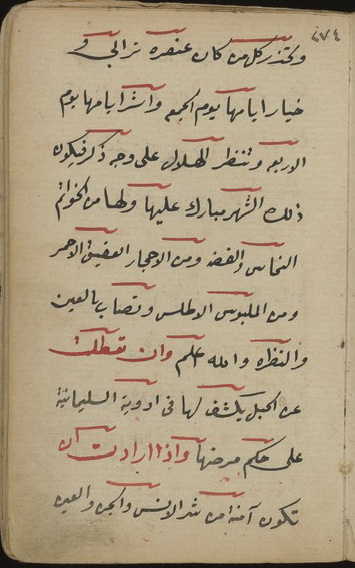 ٤٧٤
وتحذر كل من كان عنصره ترابي و
خيار ايامها يوم الجمعه واشرا يامها يوم
الاربعه وتنظر الهلال على وجه ذكر فيكون
ذلك الشهر مبارك عليها ولها من الخواتم
النحاس والفضه ومن الاحجار العقيق الاحمر
ومن الملبوس الاطلس وتصاب بالعين
والنظراه والله علم وان تعطلت
عن الحبل يكشف لها فى ادوية السليمانية
على حكم مرضها واذا ارادت ان
تكون آمنه من شر الانس والجن والعين